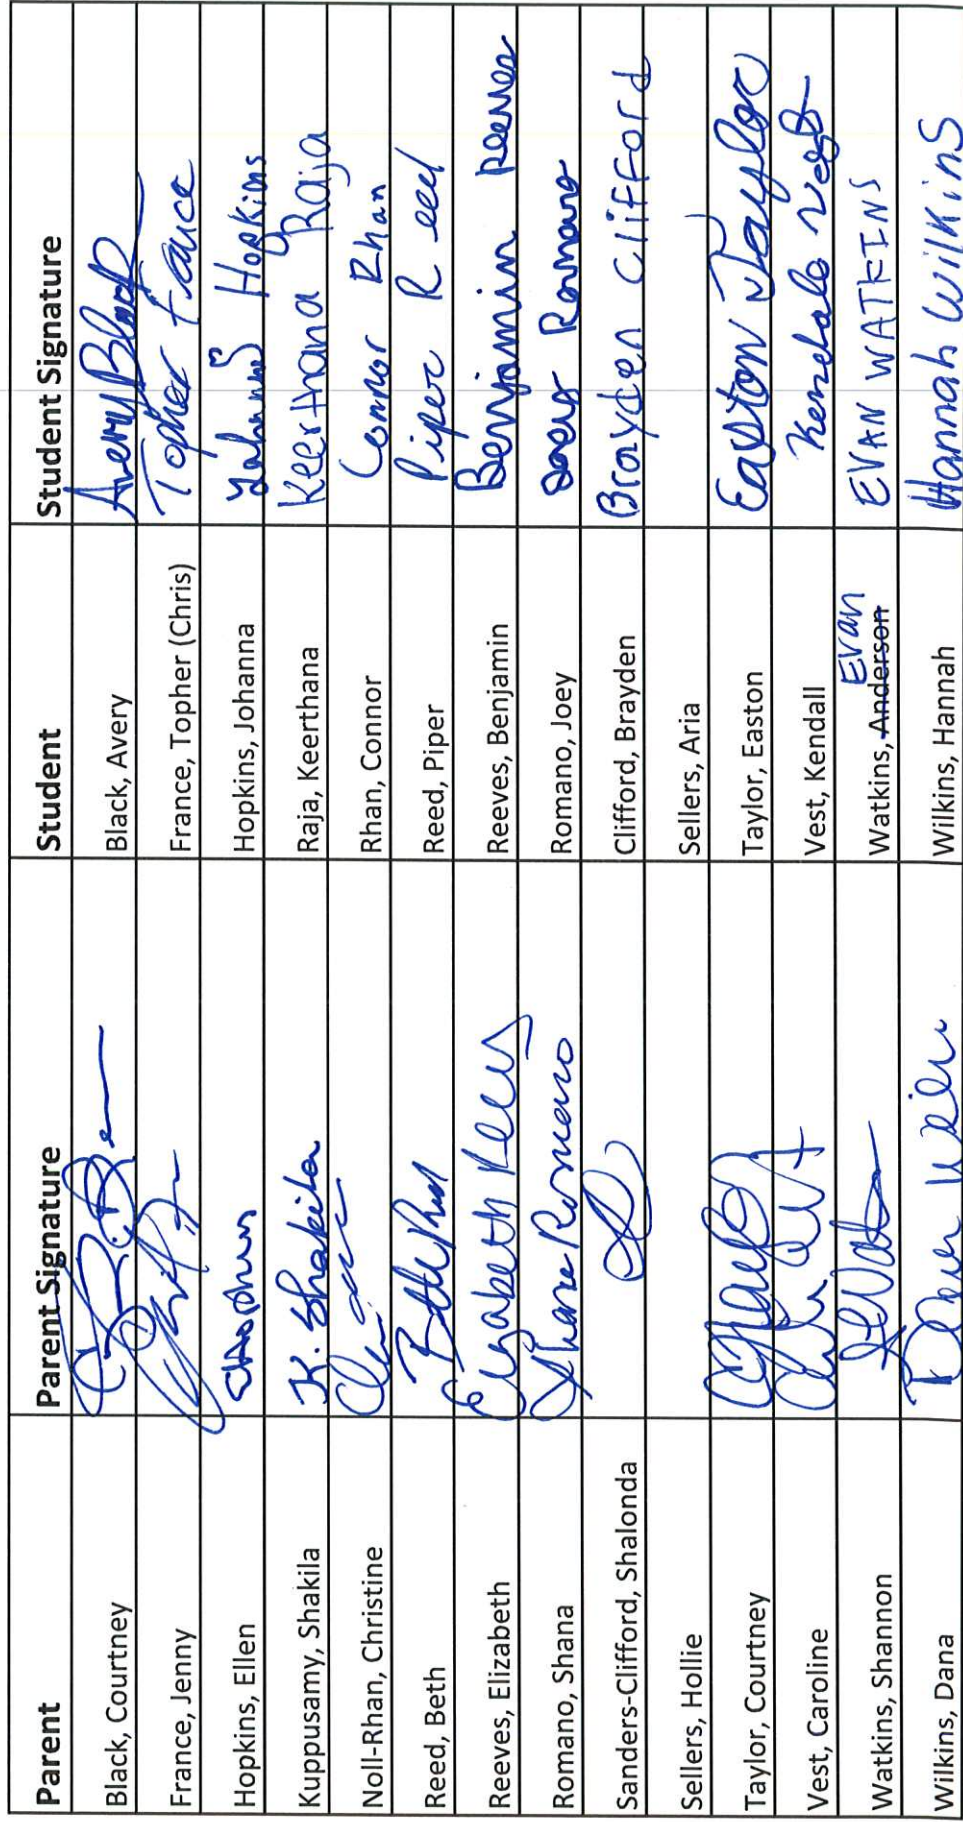 Parent Parent Signature Student Student Signature
Black, Courtney Black, Avery Avery Black
France, Jenny France, Topher (Chris) Topher France
Hopkins, Ellen Hopkins, Johanna Johanna Hopkins
Kuppusamy, Shakila K. Shakila Raja, Keerthana Keerthana Raja
Noll-Rhan, Christine Rhan, Connor Connor Rhan
Reed, Beth Beth Reed Reed, Piper Piper Reed
Reeves, Elizabeth Elizabeth Reeves Reeves, Benjamin Benjamin Reeves
Romano, Shana Shana Romano Romano, Joey Romano
Sanders-Clifford, Shalonda Clifford, Brayden Brayden Clifford
Sellers, Hollie Sellers, Aria
Taylor, Courtney Taylor, Easton Easton Taylor
Vest, Caroline Vest, Kendall Kendall Vest
Watkins, Shannon Watkins, Anderson Evan EVAN WATKINS
Wilkins, Dana Wilkins, Hannah Hannah Wilkins